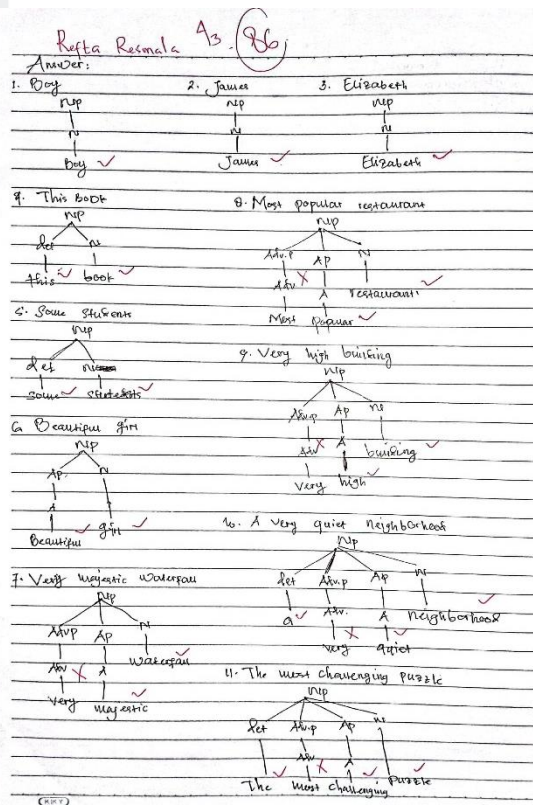 Refta Resmala A3. 86
Answer:
1. Boy
NP
N
Boy
2. James
NP
N
James
3. Elizabeth
NP
N
Elizabeth
4. This Book
NP
det N
this book
5. Some Students
NP
det N
some students
6. Beautiful girl
NP
AP. N
A
Beautiful girl
7. Very majestic waterfall
NP
Advp AP N
Adv A waterfall
very majestic
8. Most popular restaurant
NP
Adv.p AP N
Adv A restaurant
Most popular
9. Very high building
NP
Adv.p AP N
Adv A building
very high
10. A very quiet neighborhood
NP
det Adv.p AP N
a Adv. A neighborhood
very quiet
11. The most challenging puzzle
NP
det Adv.p AP N
Adv A
The most challenging puzzle